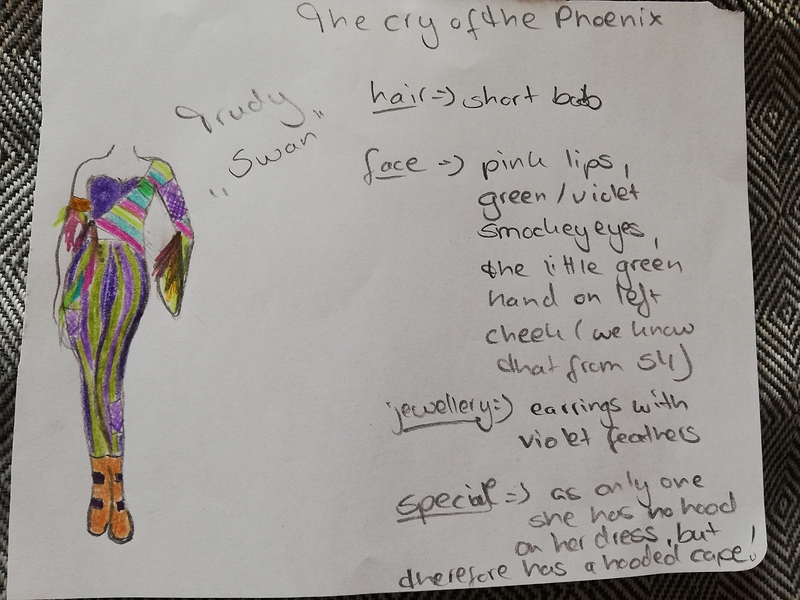 The cry of the Phoenix
Trudy
"Swan"
hair => short bob
face => pink lips,
green/violet
smockey eyes,
the little green
hand on left
cheek (we know
that from S4)
jewellery => earrings with
violet feathers
special => as only one
she has no hood
on her dress, but
therefore has a hooded cape!